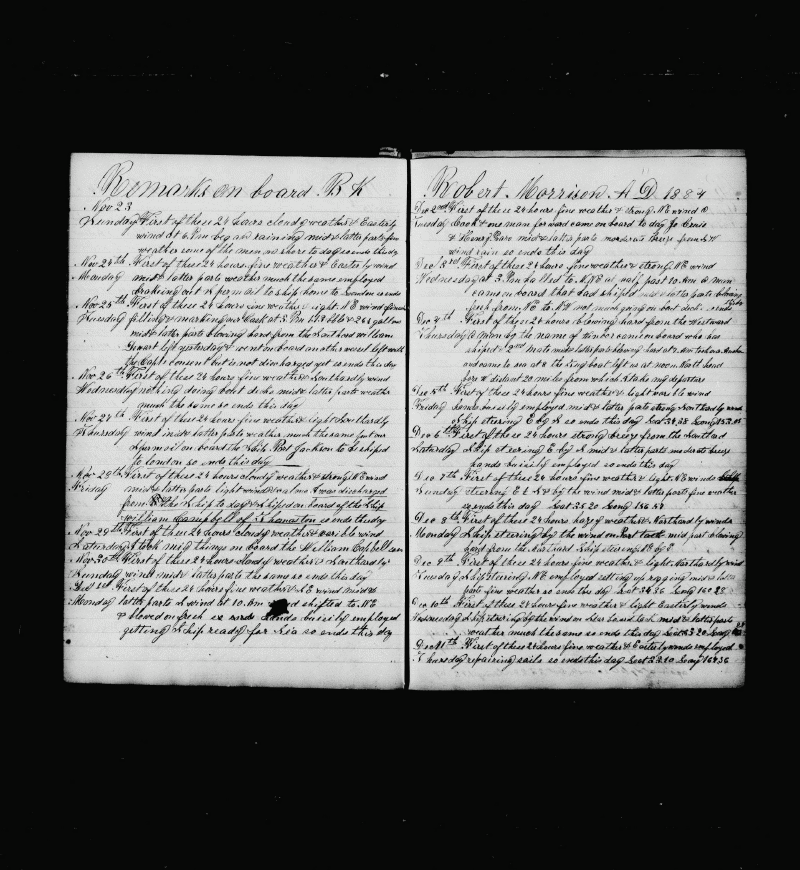 Remarks on board B K
Nov 23
Sunday First of these 24 hours cloudy weather & Easterly
wind at 6 Pm began raining mid & latter parts fine
weather some of the men on shore to day so ends this day
Nov 24th First of these 24 hours fine weather & Easterly wind
Monday mid & latter parts weather much the same employed
breaking out sperm oil to ship home to London so ends
Nov 25th First of these 24 hours fine weather & light N E wind finished
Tuesday filling & marking our Cask at 5 Pm
mid & latter parts blowing hard from the Eastward William
Stewart left yesterday & went on board another vessel left with
the Capts consent but is not discharged yet so ends this day
Nov 26th First of these 24 hours fine weather & Southardly wind
Wednesday nothing doing boat decks mid & latter parts weather
much the same so ends this day
Nov 27th First of these 24 hours fine weather & light Southardly
Thursday wind mid & latter parts weather much the same put our
Sperm oil on board the Ship Port Jackson to be shiped
to London so ends this day
Nov 28th First of these 24 hours cloudy weather & strong N E wind
Friday mid & latter parts light wind & calms I was discharged
from the Ship to day & shiped on board of the Ship
William Campbell of Thomston so ends this day
Nov 29th First of these 24 hours cloudy weather & varible wind
Saturday I took my things on board the William Campbell
Nov 30th First of these 24 hours cloudy weather & Southardly
Sunday wind mid & latter parts the same so ends this day
Dec 1st First of these 24 hours fine weather & S E wind mid &
Monday latter parts S wind at 10 Am shifted to N E
& blowed on fresh so ends hands buisily employed
getting Ship ready for Sea so ends this day
Robert Morrison A D 1884
Dec 2nd First of these 24 hours fine weather & strong N E wind a
Tuesday Cook & one man forward came on board to day
& Henry mid & latter parts moderate breeze from
wind rain so ends this day
Dec 3rd First of these 24 hours fine weather & strong N E wind
Wednesday at 3 Pm halled to N N E at half past 10 Am a man
came on board that had shiped mid & latter parts blowing
fresh from N E to N N W much going on boat decks ends
Dec 4th First of these 24 hours blowing hard from the Westward
Thursday a man by the name of came on board who has
shiped 2nd mate mid & latter parts blowing hard at
and came to sea at 8 the Tug boat left us at noon
bore distant 20 miles from which I take my departure
Dec 5th First of these 24 hours fine weather & light varible wind
Friday hands buisily employed mid & latter parts strong Southardly wind
Ship steering E by S so ends this day Lat Long 153.05
Dec 6th First of these 24 hours strong breez from the Southad
Saturday Ship steering E by S mid & latter parts moderate breeze
hands buisily employed so ends this day
Dec 7th First of these 24 hours fine weather & light N E winds Ship
Sunday steering E & S by the wind mid & latter parts fine weather
so ends this day Lat 35 20 Long 156 57
Dec 8th First of these 24 hours hazy weather & Northardly winds
Monday Ship steering by the wind on Port tack mid part blowing
hard from the Ship steering E by S
Dec 9th First of these 24 hours fine weather & light Northardly wind
Tuesday Ship steering N E employed setting up rigging mid & latter
parts fine weather so ends this day Lat 34.36 Long 160 28
Dec 10th First of these 24 hours fine weather & light Easterly winds
Wednesday Ship steering by the wind on Star board tack mid & latter parts
weather much the same so ends this day Lat 33 20 Long
Dec 11th First of these 24 hours fine weather & Easterly winds employed
Thursday repairing sails so ends this day Lat 33 10 Long 164 36